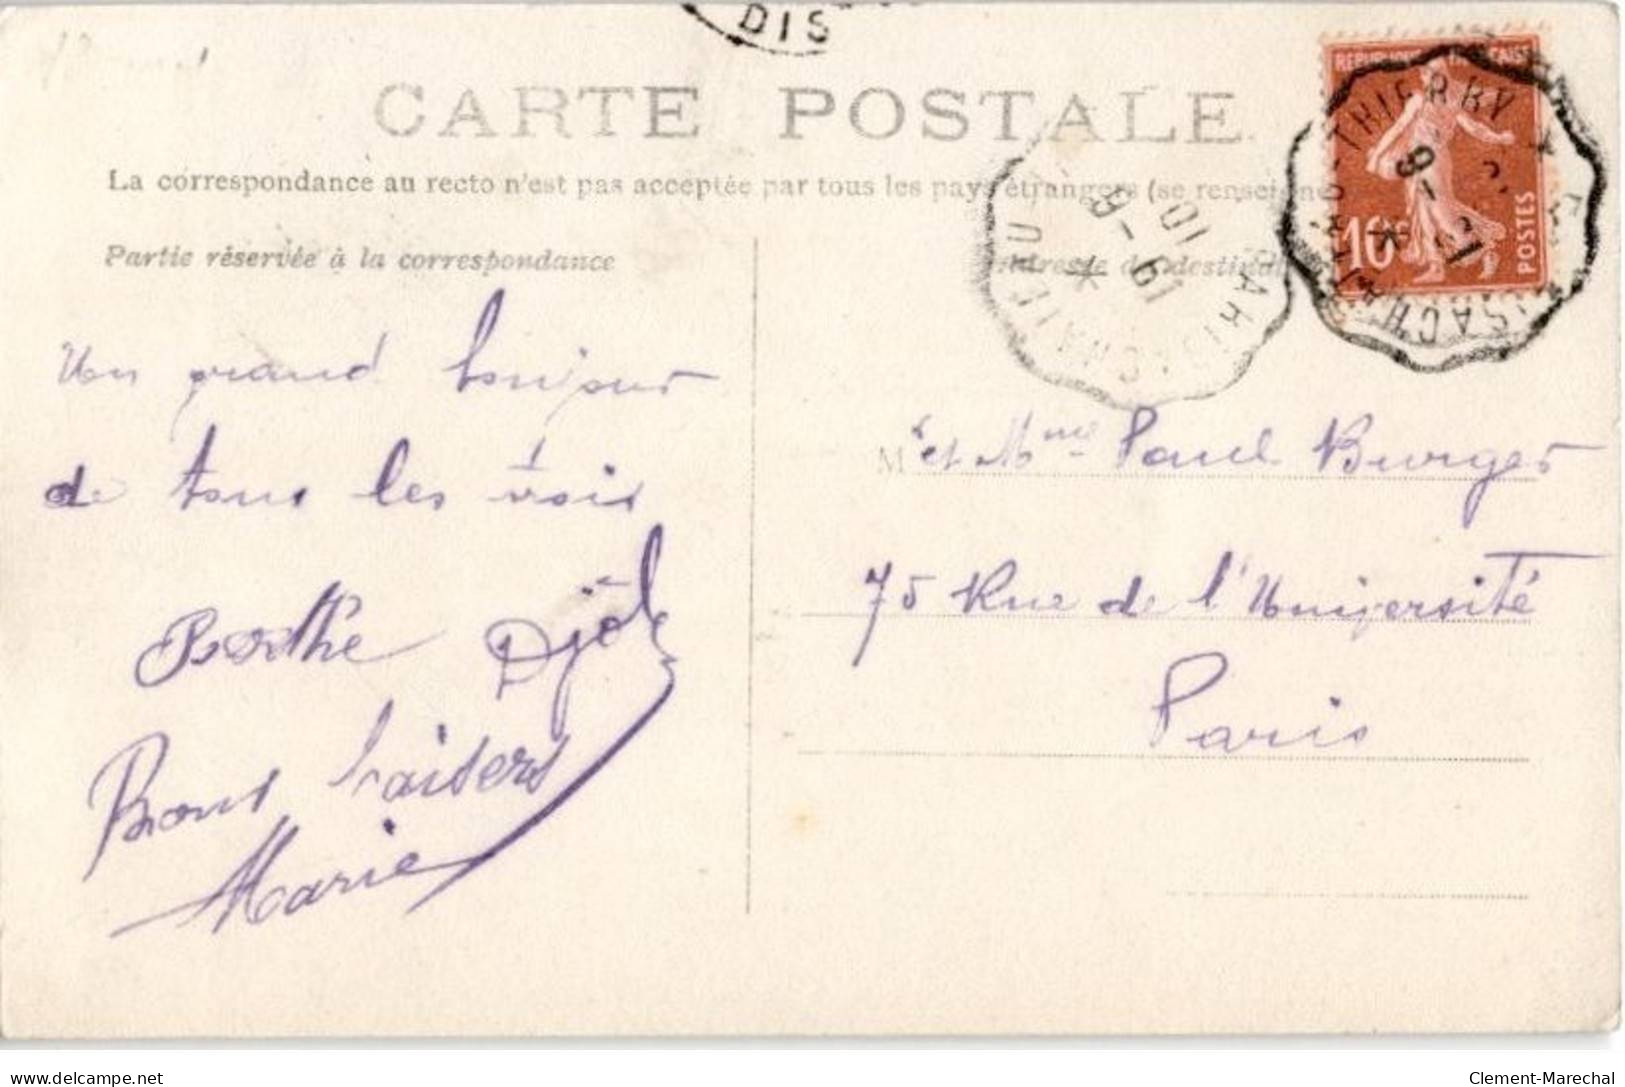 DIS
CARTE POSTALE
La correspondance au recto n'est pas acceptée par tous les pays étrangers (se renseigne
Partie réservée à la correspondance
Adresse du destina
POSTES
10
Un grand bonjour
de tous les trois
Berthe Djélé
Bons baisers
Marie
M et Mme Paul Burger
75 Rue de l'Université
Paris
delcampe.net
Clement-Marechal